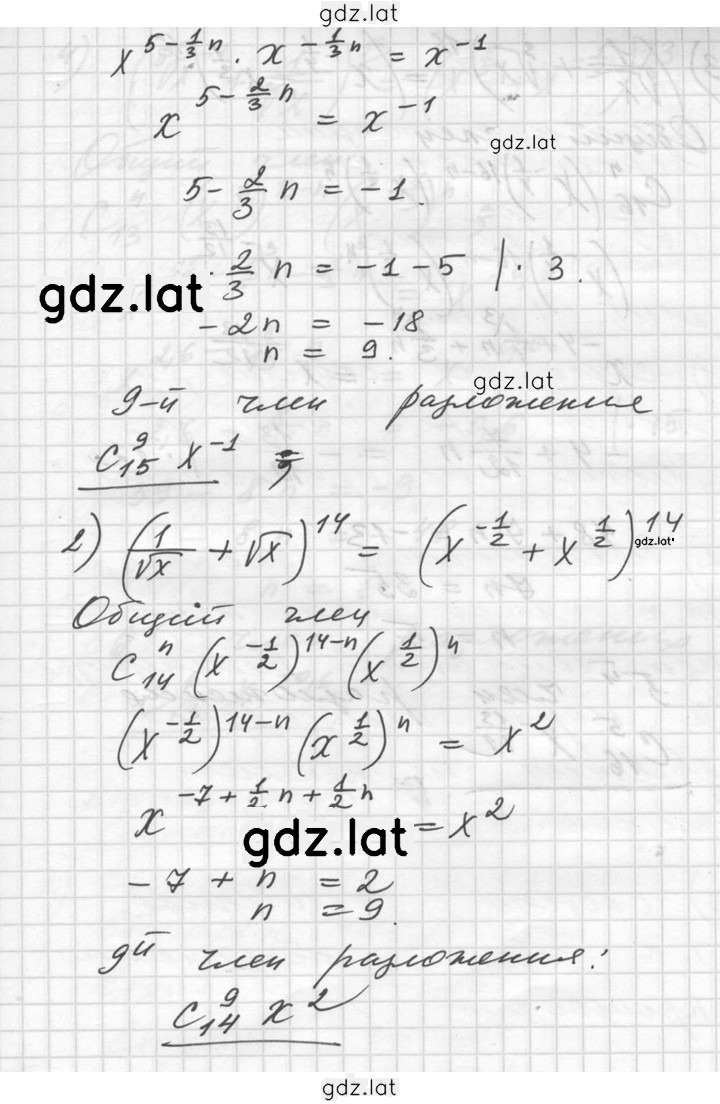 gdz.lat
x^{5-\frac{1}{3}n} · x^{-\frac{1}{3}n} = x^{-1}
x^{5-\frac{2}{3}n} = x^{-1}
gdz.lat
5-\frac{2}{3}n = -1.
-\frac{2}{3}n = -1-5 | · 3.
gdz.lat
-2n = -18
n = 9.
gdz.lat
9-й член разложение
C_{15}^{9} x^{-1}
2) (\frac{1}{\sqrt{x}} + \sqrt{x})^{14} = (x^{-\frac{1}{2}} + x^{\frac{1}{2}})^{14}
gdz.lat
Общий член
C_{14}^{n} (x^{-\frac{1}{2}})^{14-n} (x^{\frac{1}{2}})^{n}
(x^{-\frac{1}{2}})^{14-n} (x^{\frac{1}{2}})^{n} = x^{2}
x^{-7+\frac{1}{2}n+\frac{1}{2}n} = x^{2}
gdz.lat
-7 + n = 2
n = 9.
9й член разложения:
C_{14}^{9} x^{2}
gdz.lat